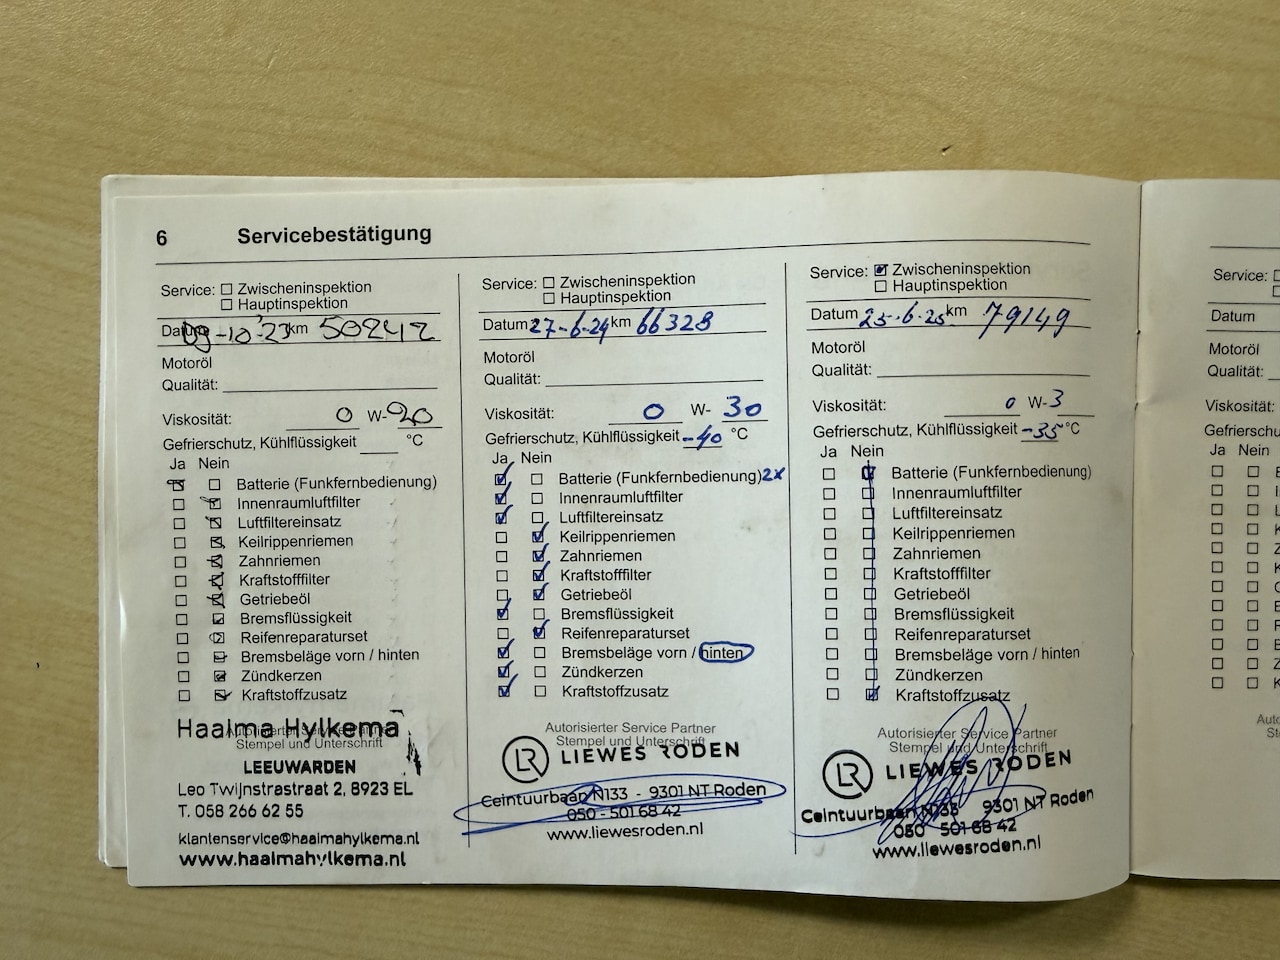 6 Servicebestätigung
Service: Zwischeninspektion
Hauptinspektion
Datum 09-10-'23 km 50242
Motoröl
Qualität:
Viskosität: 0 W-20
Gefrierschutz, Kühlflüssigkeit °C
Ja Nein
Batterie (Funkfernbedienung)
Innenraumluftfilter
Luftfiltereinsatz
Keilrippenriemen
Zahnriemen
Kraftstofffilter
Getriebeöl
Bremsflüssigkeit
Reifenreparaturset
Bremsbeläge vorn / hinten
Zündkerzen
Kraftstoffzusatz
Autorisierter Service Partner
Stempel und Unterschrift
Haalma Hylkema
LEEUWARDEN
Leo Twijnstrastraat 2, 8923 EL
T. 058 266 62 55
klantenservice@haalmahylkema.nl
www.haalmahylkema.nl
Service: Zwischeninspektion
Hauptinspektion
Datum 27-6-24 km 66328
Motoröl
Qualität:
Viskosität: 0 W- 30
Gefrierschutz, Kühlflüssigkeit -40 °C
Ja Nein
Batterie (Funkfernbedienung) 2x
Innenraumluftfilter
Luftfiltereinsatz
Keilrippenriemen
Zahnriemen
Kraftstofffilter
Getriebeöl
Bremsflüssigkeit
Reifenreparaturset
Bremsbeläge vorn / hinten
Zündkerzen
Kraftstoffzusatz
Autorisierter Service Partner
Stempel und Unterschrift
LR LIEWES RODEN
Ceintuurbaan N133 - 9301 NT Roden
050 - 501 68 42
www.liewesroden.nl
Service: Zwischeninspektion
Hauptinspektion
Datum 25-6-25 km 79149
Motoröl
Qualität:
Viskosität: 0 W-3
Gefrierschutz, Kühlflüssigkeit -35 °C
Ja Nein
Batterie (Funkfernbedienung)
Innenraumluftfilter
Luftfiltereinsatz
Keilrippenriemen
Zahnriemen
Kraftstofffilter
Getriebeöl
Bremsflüssigkeit
Reifenreparaturset
Bremsbeläge vorn / hinten
Zündkerzen
Kraftstoffzusatz
Autorisierter Service Partner
Stempel und Unterschrift
LR LIEWES RODEN
Ceintuurbaan N133 9301 NT Roden
050 501 68 42
www.liewesroden.nl
Service:
Datum
Motoröl
Qualität:
Viskosität:
Ja Nein